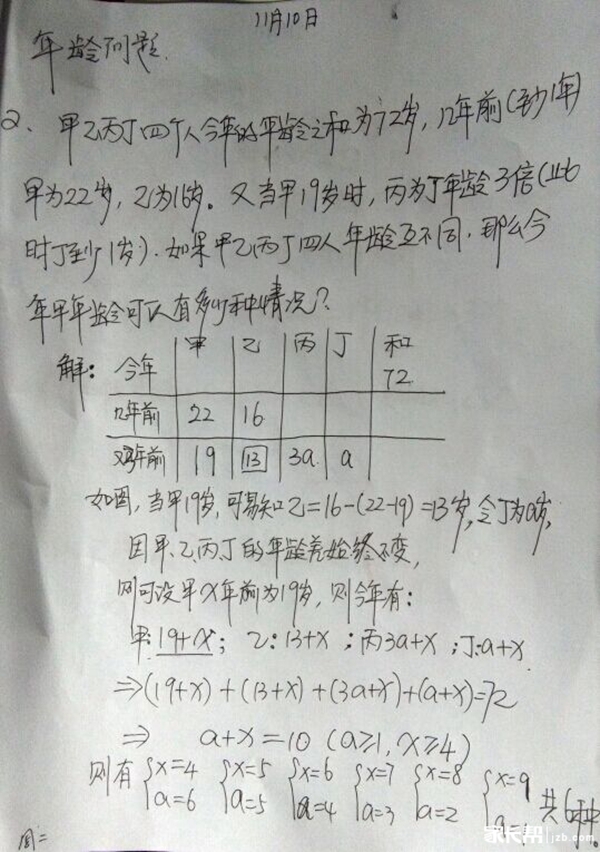 11月10日
年龄问题.
2、甲乙丙丁四个人今年的年龄之和为72岁,几年前(至少1年)
甲为22岁,乙为16岁。又当甲19岁时,丙为丁年龄3倍(此
时丁至少1岁).如果甲乙丙丁四人年龄互不同.那么今
年甲年龄可以有多少种情况?
解: 今年 甲 乙 丙 丁 和
72
几年前 22 16
又3年前 19 13 3a a
如图,当甲19岁,可易知乙=16-(22-19)=13岁,令丁为a岁,
因甲、乙、丙、丁的年龄差始终不变,
则可设甲x年前为19岁,则今年有:
甲:19+x; 乙:13+x ;丙3a+x ;丁:a+x
⇒(19+x)+(13+x)+(3a+x)+(a+x)=72
⇒ a+x=10 (a≥1,x≥4)
则有 {x=4 {x=5 {x=6 {x=7 {x=8 {x=9 共6种
a=6 a=5 a=4 a=3 a=2 a=
周二
家长帮 jzb.com